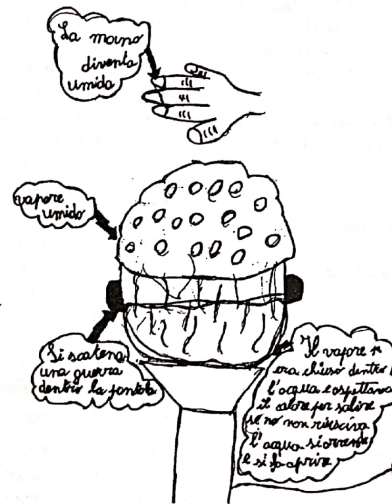 La mano
diventa
umida
vapore
umido
Si scatena
una guerra
dentro la pentola
Il vapore si
era chiuso dentro
l'acqua e aspettava
il calore per salire
se no non riusciva
l'acqua si arrende
e si fa aprire